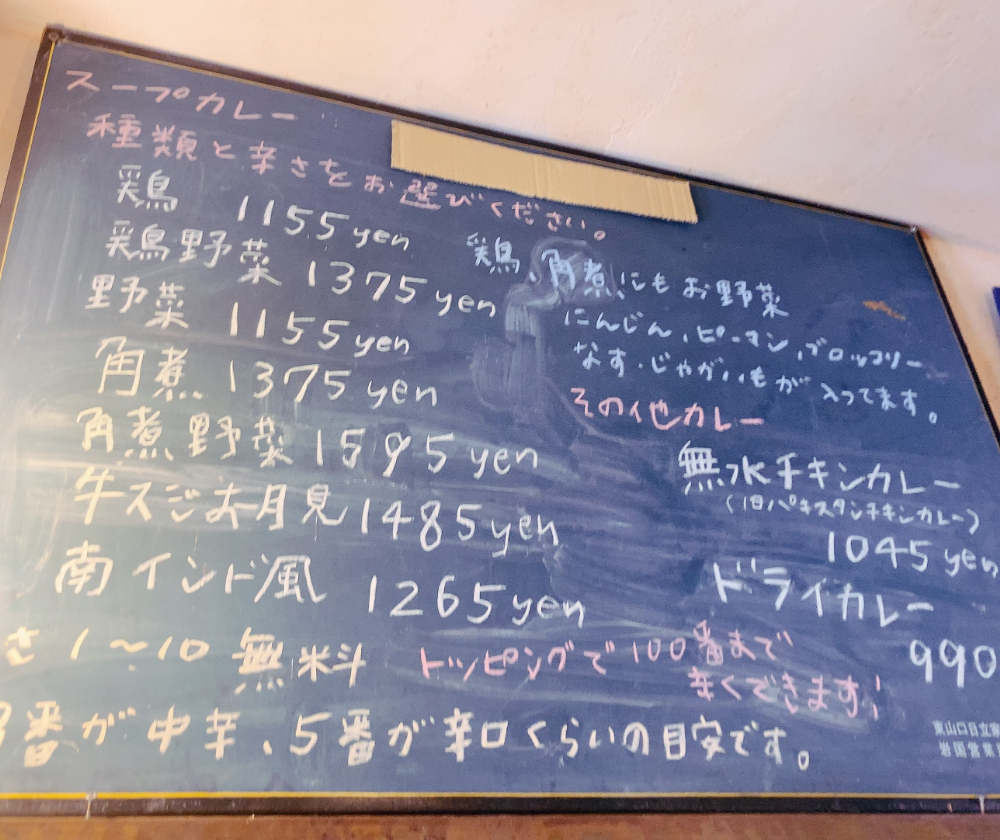 スープカレー
種類と辛さをお選びください。
鶏 1155yen
鶏野菜 1375yen
野菜 1155yen
角煮 1375yen
角煮野菜 1595yen
牛スジお月見 1485yen
南インド風 1265yen
さ 1〜10 無料
トッピングで100番まで
辛くできます!
番が中辛、5番が辛口くらいの目安です。
鶏、角煮にもお野菜
にんじん、ピーマン、ブロッコリー
なす、じゃがいもが入ってます。
その他カレー
無水チキンカレー
(旧パキスタンチキンカレー)
1045yen
ドライカレー
990